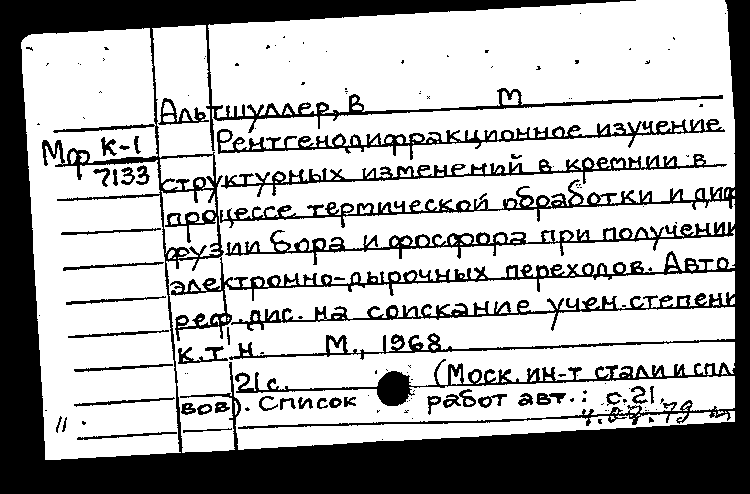 Альтшуллер, В М
Мф К-1 Рентгенодифракционное изучение
7133 структурных изменений в кремнии в
процессе термической обработки и диф
фузии бора и фосфора при получении
электронно-дырочных переходов. Авто-
реф. дис. на соискание учен. степени
к.т.н. М., 1968.
21 с. (Моск. ин-т стали и спла
вов). Список работ авт.: с.21.